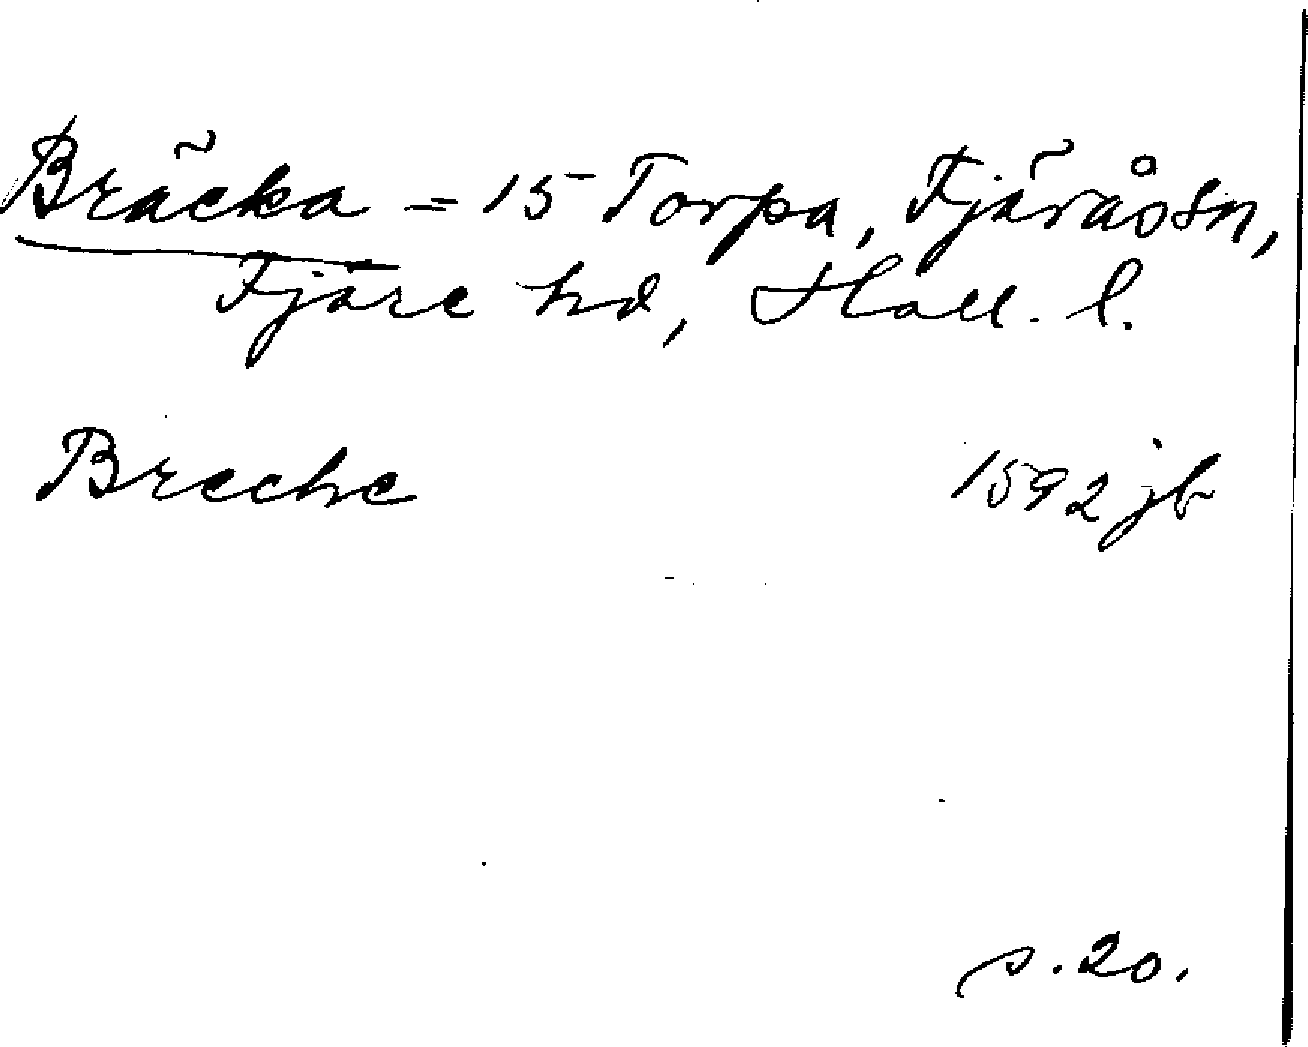 Bräcka = 15 Torpa, Fjärås sn,
Fjäre hd, Hall. l.
Brecke 1592 jb
s. 20.